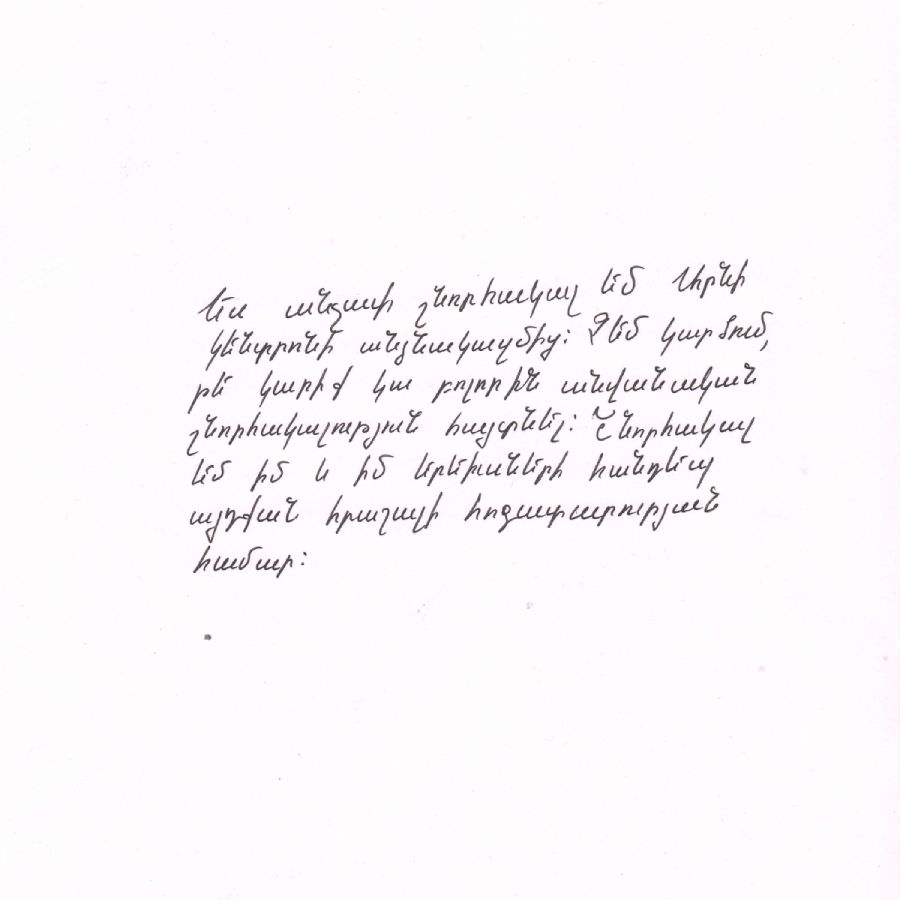 Ես անչափ շնորհակալ եմ Արնի
կենտրոնի անձնակազմից: Չեմ կարծում,
թե կարիք կա բոլորին անվանական
շնորհակալություն հայտնել: Շնորհակալ
եմ իմ և իմ երեխաների հանդեպ
այդքան հրաշալի հոգատարության
համար: